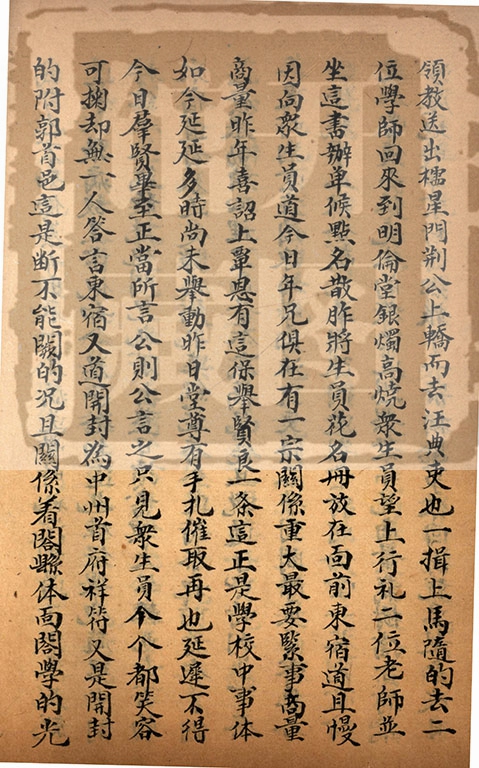 領教送出櫺星門荆公上轎而去汪典吏也一揖上馬隨的去二
位學師回來到明倫堂銀燭高燒衆生員望上行礼二位老師並
坐這書辦单候點名散胙將生員花名冊放在面前東宿道且慢
因向衆生員道今日年兄俱在有一宗關係重大最要緊事商量
商量昨年喜詔上覃恩有這保舉賢良一条這正是學校中事体
如今延延多時尚未舉動昨日堂尊有手札催取再也延遲不得
今日羣賢畢至正當所言公則公言之只見衆生員个个都笑容
可掬却無一人答言東宿又道開封為中州首府祥符又是開封
的附郭首邑這是断不能闕的况且關係着閤縣体面閤學的光